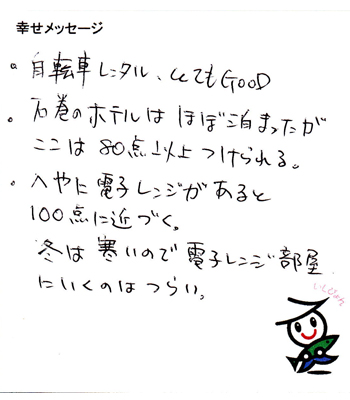 幸せメッセージ
。自転車レンタル、とてもGOOD
。石巻のホテルは ほぼ泊まったが
ここは 80点以上つけられる。
。へやに電子レンジがあると
100点に近づく。
冬は寒いので電子レンジ部屋
にいくのはつらい。